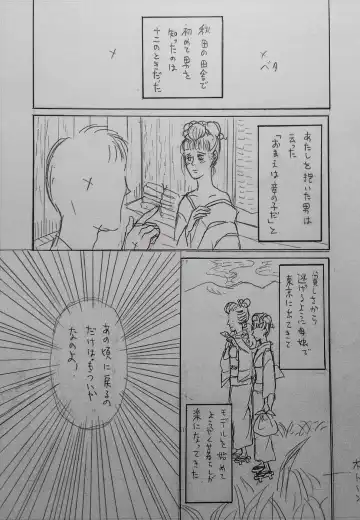 秋田の田舎で
初めて男を
知ったのは
十二のときだった
ベタ
あたしを抱いた男は
云った
「おまえは の子だ」と
貧しさから
逃げるように母娘で
東京に出てきて
モデルを始めて
ようやく暮らしが
楽になってきた
あの頃に戻るの
だけはもういや
なのよ!